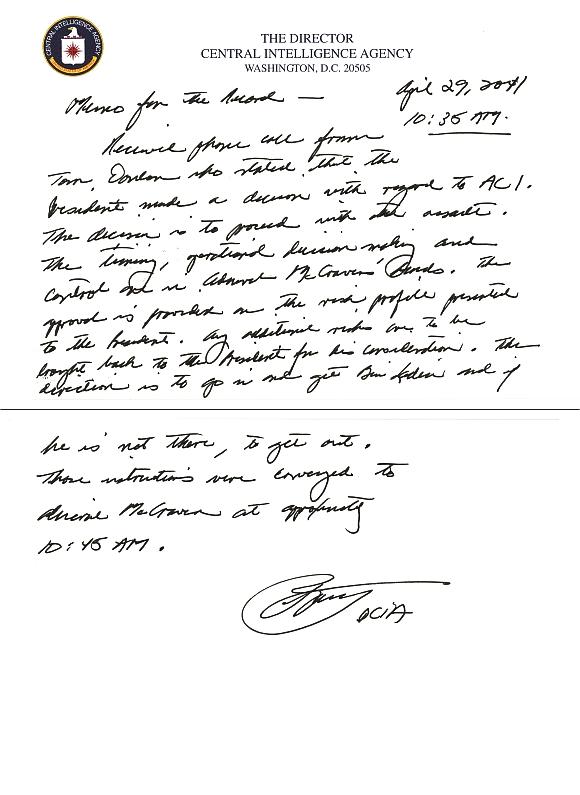 CENTRAL INTELLIGENCE AGENCY
UNITED STATES OF AMERICA
THE DIRECTOR
CENTRAL INTELLIGENCE AGENCY
WASHINGTON, D.C. 20505
April 29, 2011
Memo for the Record —
10:35 AM.
Received phone call from
Tom Donilon who stated that the
President made a decision with regard to AC1.
The decision is to proceed with the assault.
The timing, operational decision making and
control are in Admiral McRaven's hands. The
approval is provided on the risk profile presented
to the President. Any additional risks are to be
brought back to the President for his consideration. The
direction is to go in and get Bin Laden and if
he is not there, to get out.
Those instructions were conveyed to
Admiral McRaven at approximately
10:45 AM.
DCIA